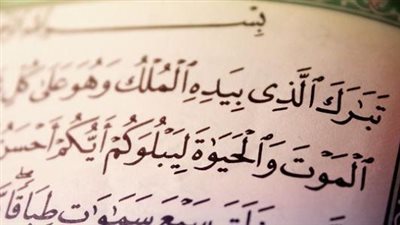 بِسْمِ
تَبَٰرَكَ ٱلَّذِى بِيَدِهِ ٱلْمُلْكُ وَهُوَ عَلَىٰ كُلِّ
ٱلْمَوْتَ وَٱلْحَيَوٰةَ لِيَبْلُوَكُمْ أَيُّكُمْ أَحْسَنُ
سَبْعَ سَمَٰوَٰتٍ طِبَاقًا